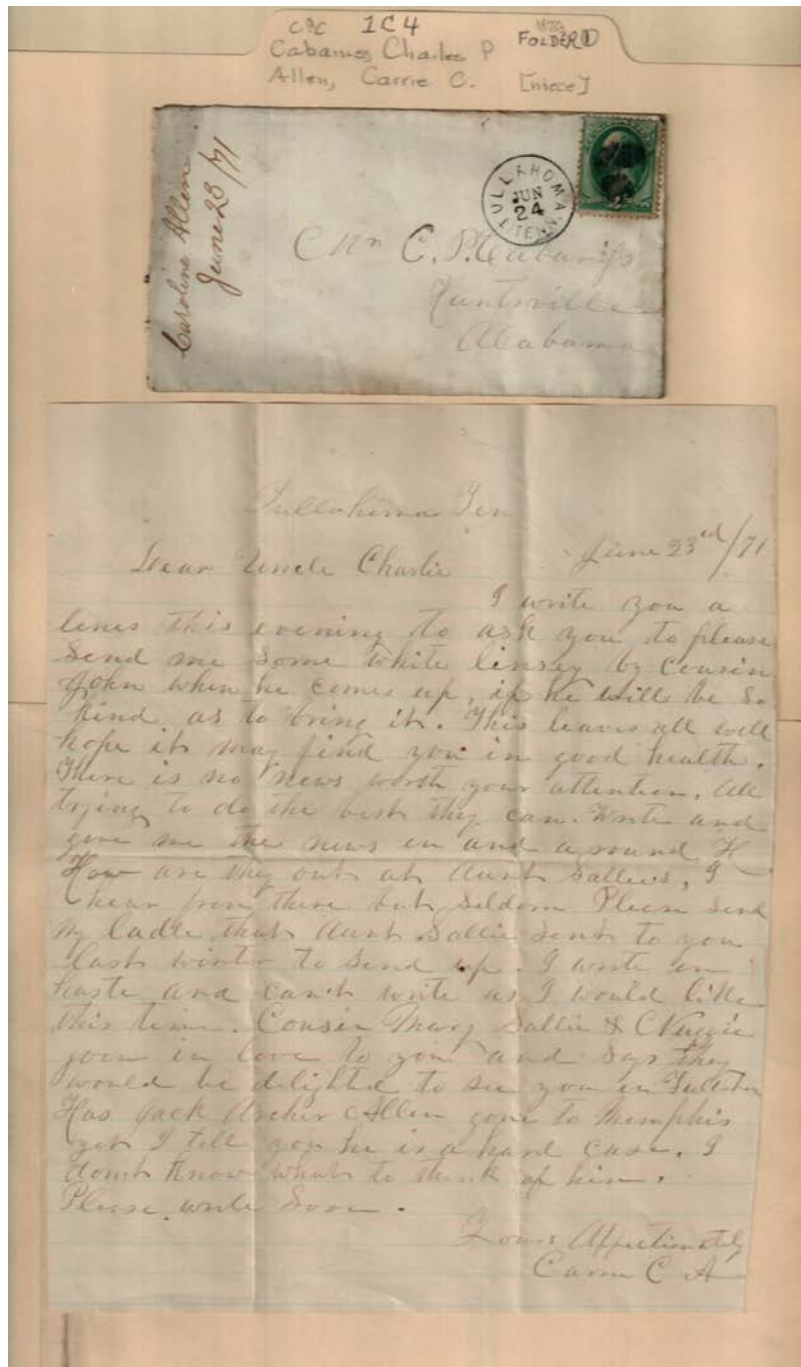 CPC 1C4 1870s FOLDER 1
Cabaniss, Charles P
Allen, Carrie C. [niece]
Caroline Allen
June 23/71
TULLAHOMA
JUN
24
TENN.
C. P. Cabaniss
Huntsville
Alabama
Tullahoma Ten
June 23rd/71
Dear Uncle Charlie
I write you a
lines this evening to ask you to please
Send me some white linsey by cousin
John when he comes up, if he will be so
kind as to bring it. This leaves all well
hope it may find you in good health.
There is no news worth your attention. All
trying to do the best they can. Write and
give me the news in and around H—
How are they out at Aunt Sallies, I
hear from there but seldom Please send
my ladle that Aunt Sallie sent to you
last winter to send up. I write in
haste and can't write as I would like
this time. Cousin Mary Sallie &
join in love to you and says they
would be delighted to see you in
Has Jack Archer Allen gone to Memphis
yet I tell you he is a hard case. I
dont know what to think of him.
Please write Soon.
Yours Affectionately
Carrie C A